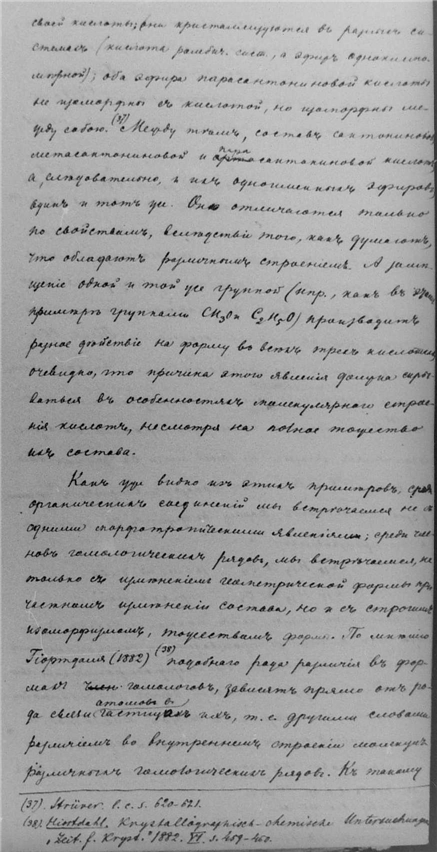 своей кислоты; они кристаллизуются въ разныхъ си-
стемахъ (кислота ромбич. сист., а эфиръ одноклино-
мѣрной); оба эфира парасантониновой кислоты
не изоморфны съ кислотой, но изоморфны ме-
жду собою. (37) Между тѣмъ, составъ сантониновой
метасантониновой и парасантониновой кислотъ
а, слѣдовательно, и ихъ одноименныхъ эфировъ
одинъ и тотъ же. Они отличаются только
по свойствамъ, вслѣдствіе того, какъ думаютъ,
что обладаютъ различнымъ строеніемъ. А замѣ-
щеніе одной и той же группой (нпр., какъ въ
примѣрѣ группами CH3O и C2H5O) производитъ
разное дѣйствіе на форму во всѣхъ трехъ кислотахъ
очевидно, что причина этого явленія должна скры-
ваться въ особенностяхъ молекулярнаго строе-
нія кислотъ, несмотря на полное тождество
ихъ состава.
Какъ уже видно изъ этихъ примѣровъ, среди
органическихъ соединеній мы встрѣчаемся не съ
одними морфотропическими явленіями; среди чле-
новъ гомологическихъ рядовъ, мы встрѣчаемся, не
только съ измѣненіемъ геометрической формы при
частномъ измѣненіи состава, но и съ строгимъ
изоморфизмомъ, тождествомъ формъ. По мнѣнію
Гіортдаля (1882) (38) подобнаго рода различія въ фор-
махъ гомологовъ, зависятъ прямо отъ ро-
да связи атомовъ въ частицахъ ихъ, т. е. другими словами
различіемъ во внутреннемъ строеніи молекулъ
различныхъ гомологическихъ рядовъ. Къ такому
(37) Strüver. l. c. s. 620-621.
(38) Hiortdahl. Krystallographisch-chemische Untersuchungen
„Zeit. f. Kryst." 1882. VI. s. 459-460.